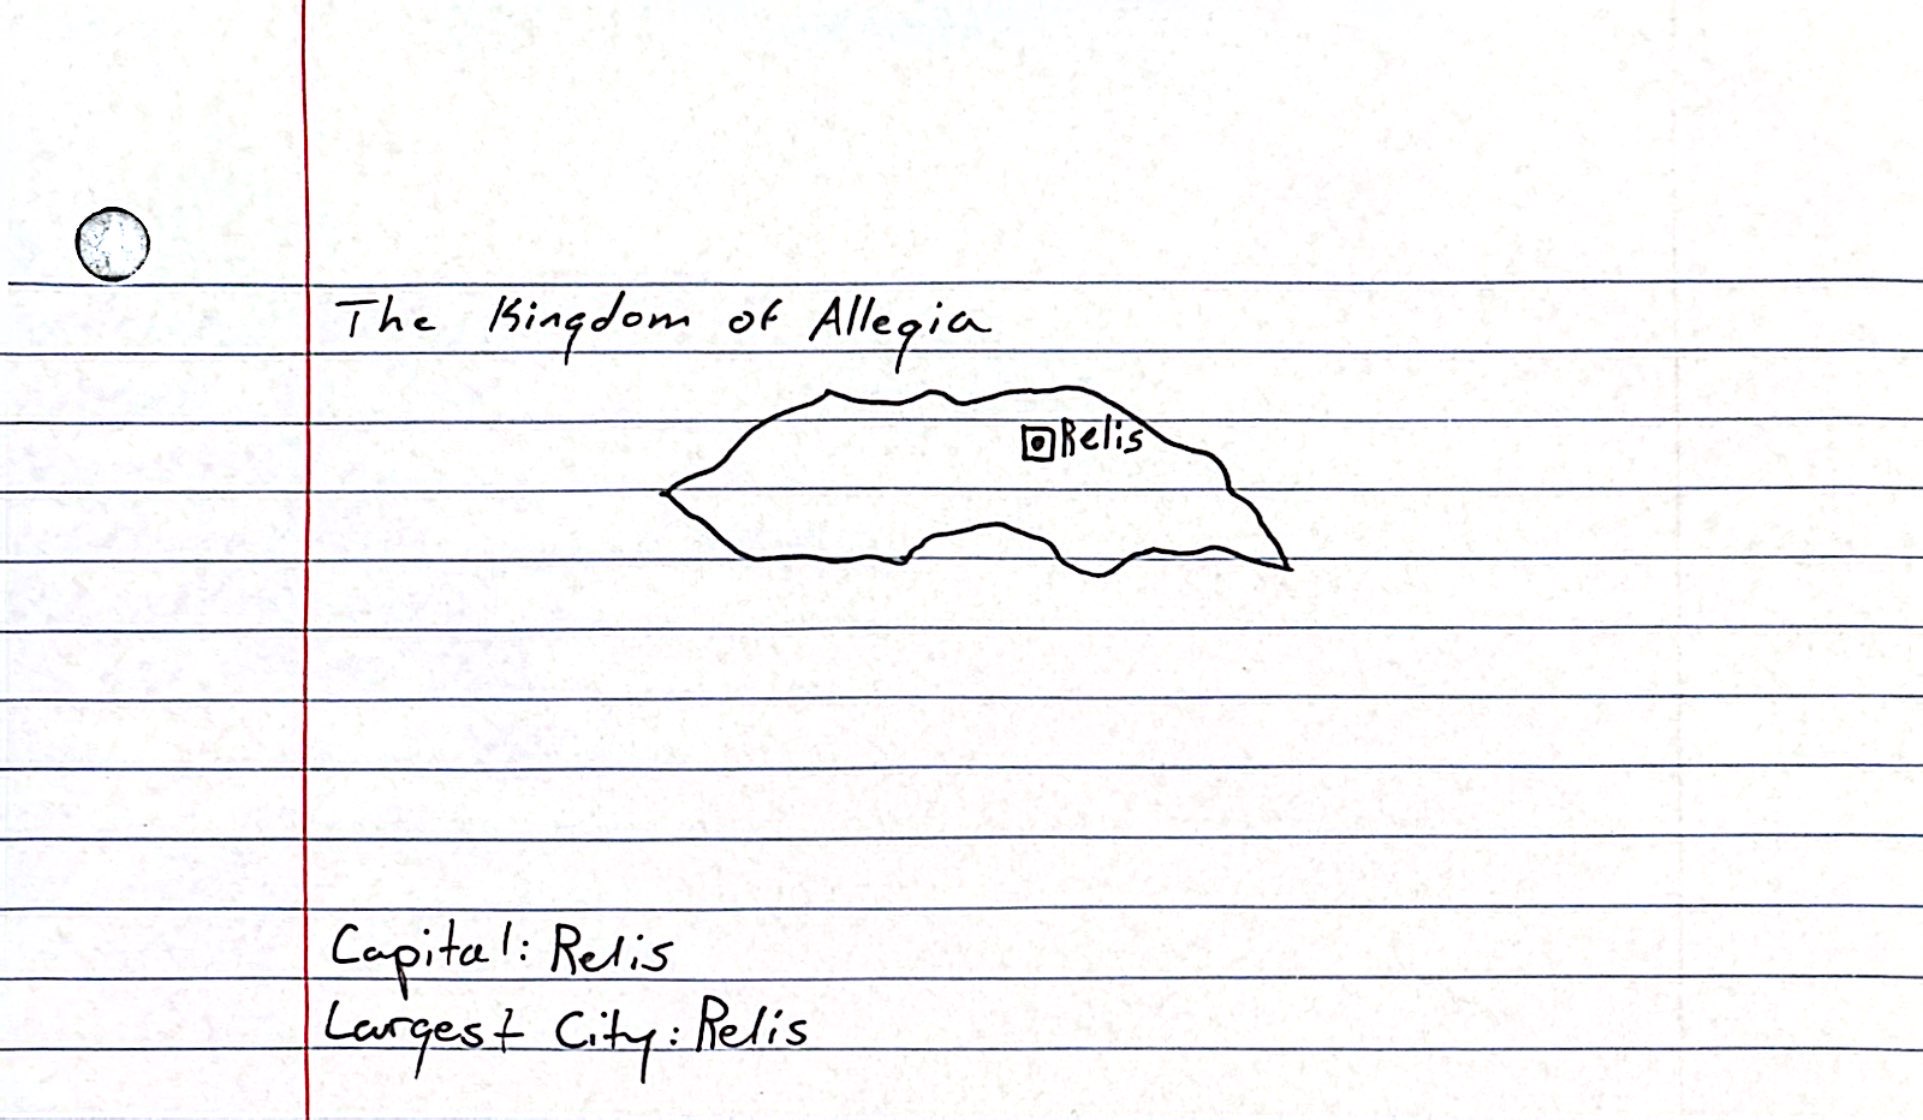 The Kingdom of Allegia
Relis
Capital: Relis
Largest City: Relis